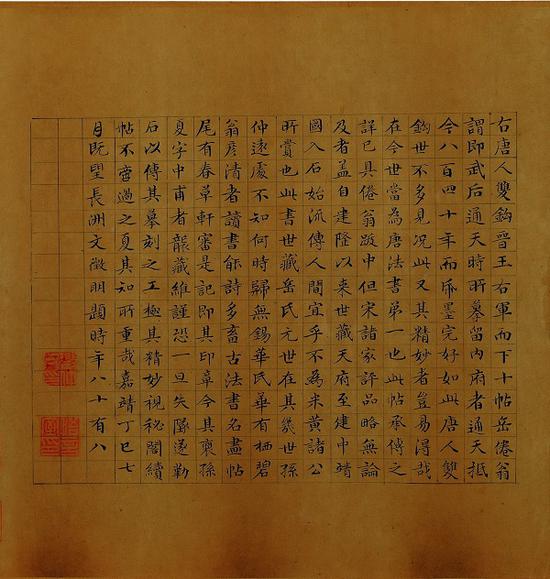 右唐人雙鈎晉王右軍而下十帖岳倦翁
謂即武后通天時所摹留内府者通天抵
今八百四十年而紙墨完好如此唐人雙
鈎世不多見況此又其精妙者豈易得哉
在今世當為唐法書第一也此帖承傳之
詳已具倦翁跋中但宋諸家評品略無論
及者蓋自建隆以来世藏天府至建中靖
國入石始流傳人間宜乎不為米黃諸公
所賞也此書世藏岳氏元世在其幾世孫
仲遠處不知何時歸無錫華氏華有栖碧
翁彦清者讀書能詩多畜古法書名畫帖
尾有春草軒審是記即其印章今其裔孫
夏字中甫者襲藏維謹恐一旦失墜遂勒
石以傳其摹刻之工極其精妙視秘閣續
帖不啻過之夏其知所重哉嘉靖丁巳七
月既望長洲文徵明題時年八十有八